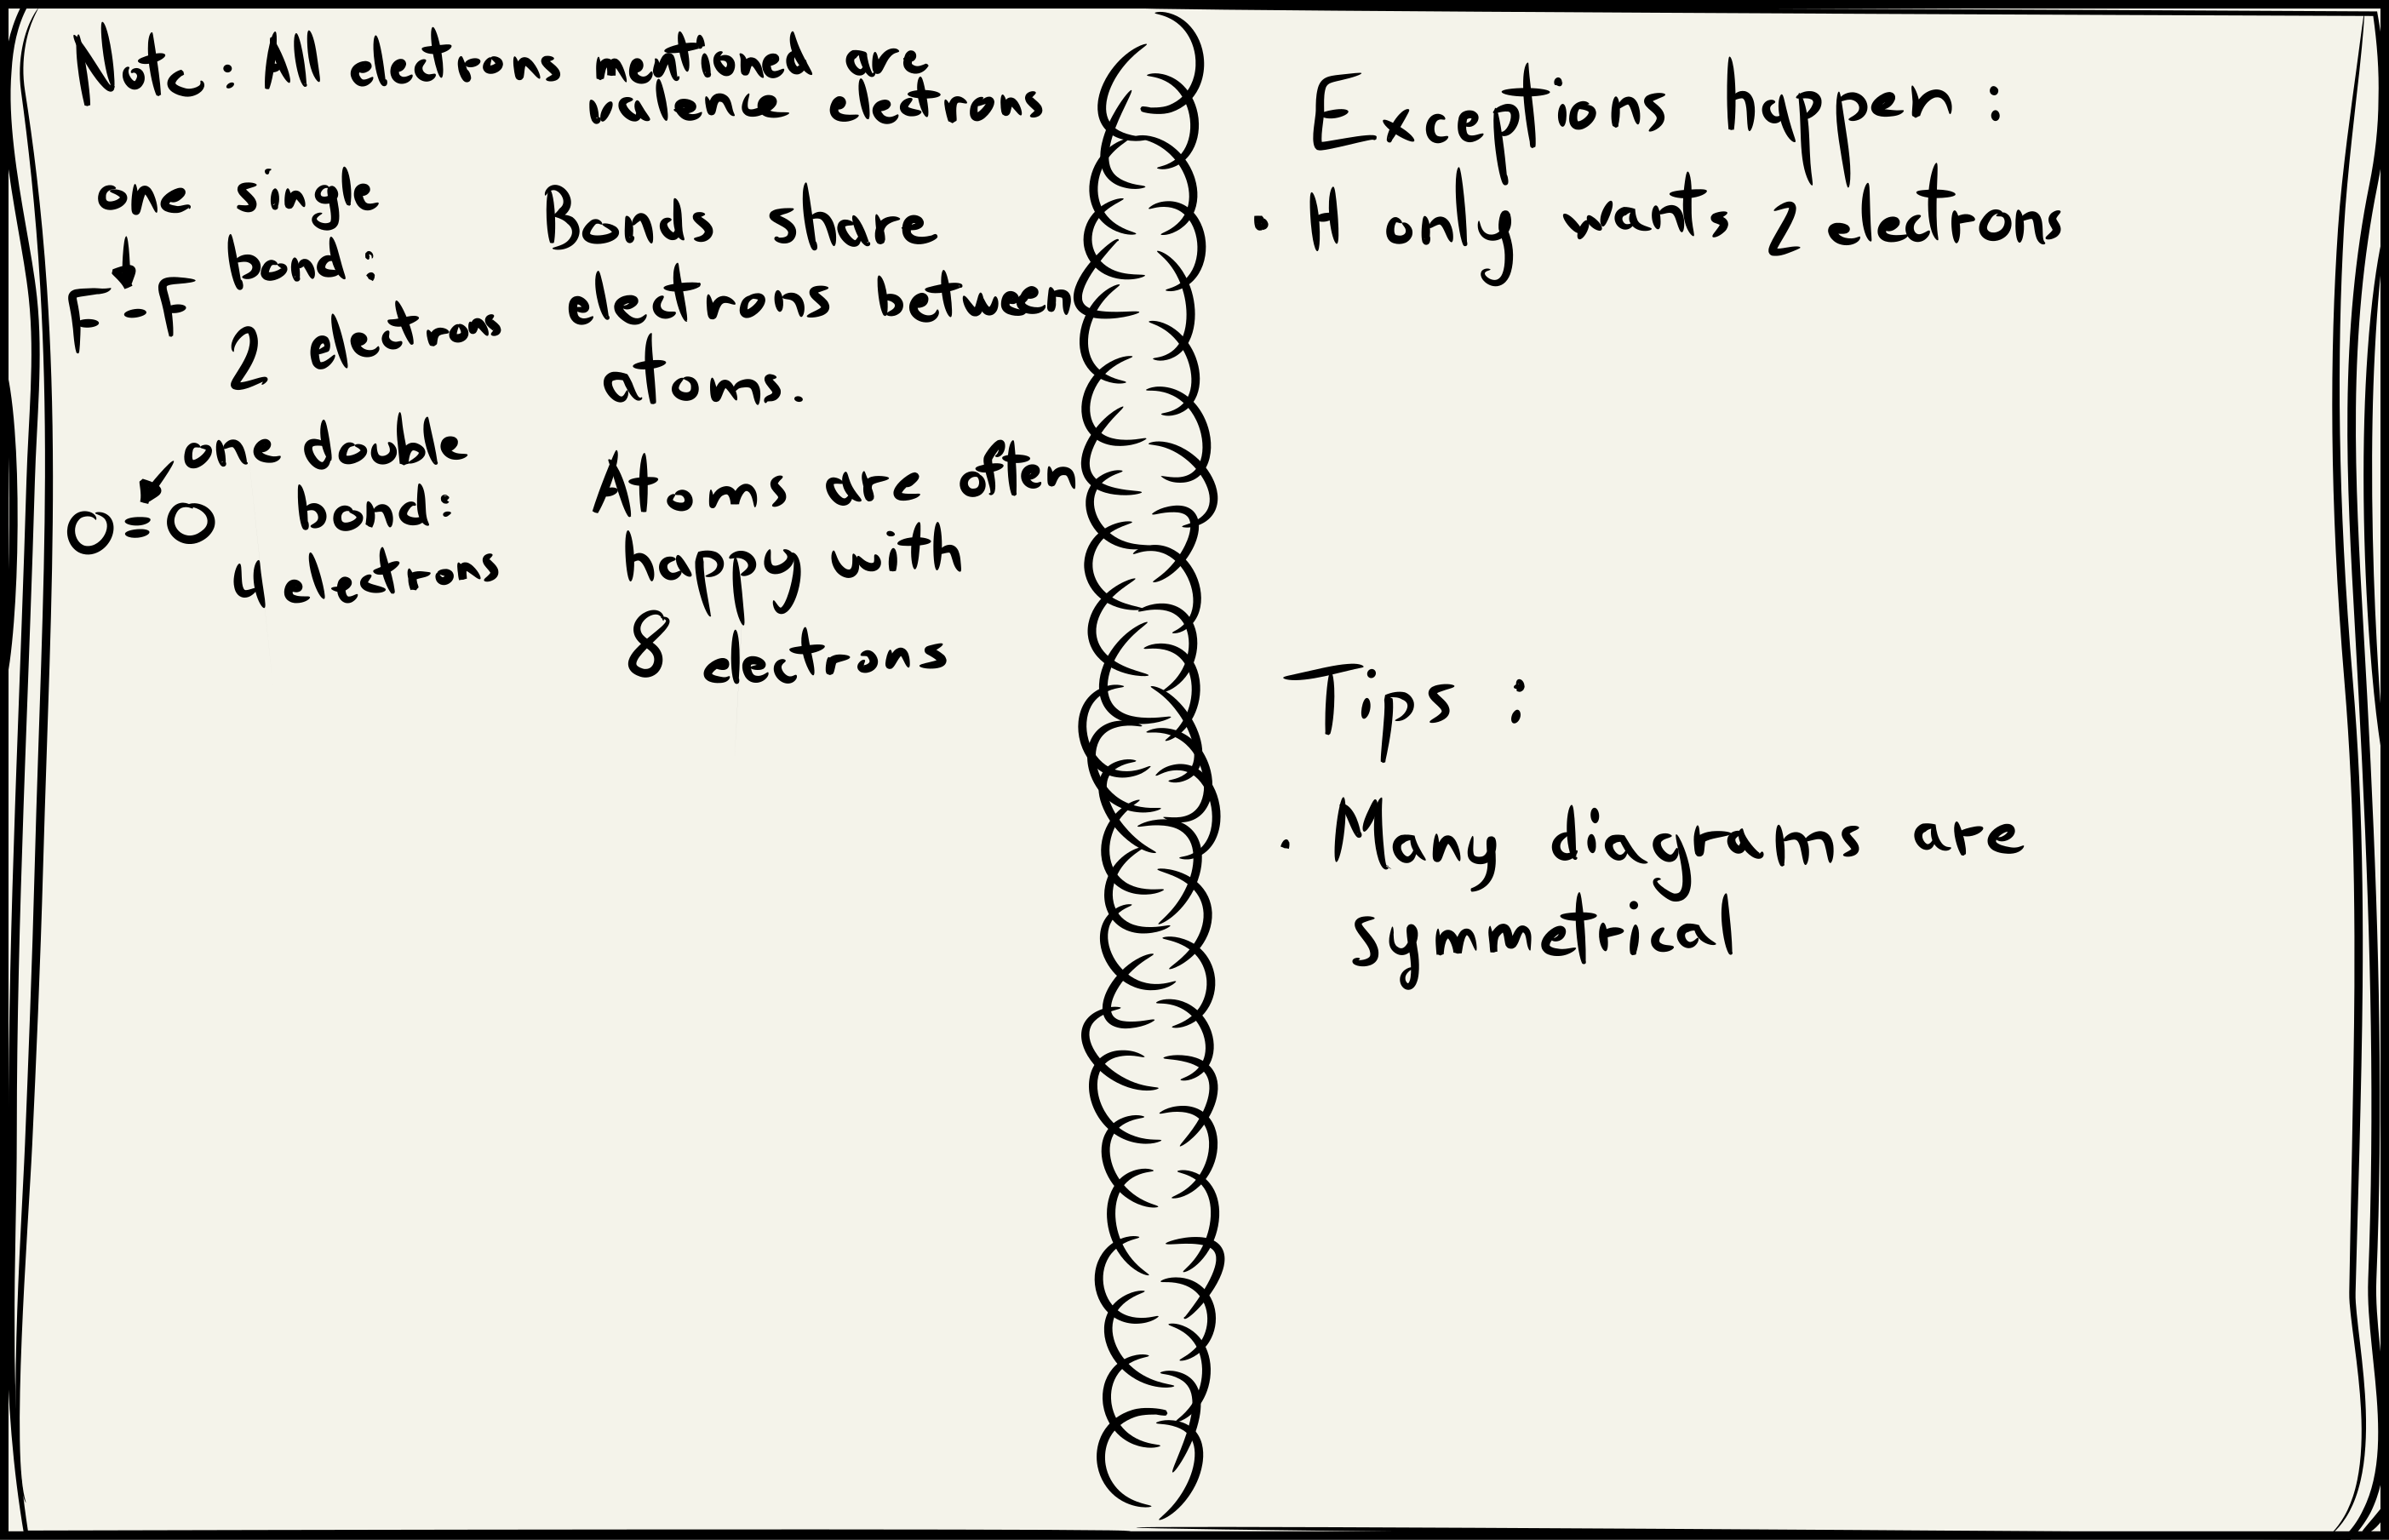 Note : All electrons mentioned are
valence electrons
one single
bond :
F - F
2 electrons
Bonds share
electrons between
atoms.
one double
bond :
O = O
4 electrons
Atoms are often
happy with
8 electrons
Exceptions happen :
· H only wants 2 electrons
Tips :
· Many diagrams are
symmetrical